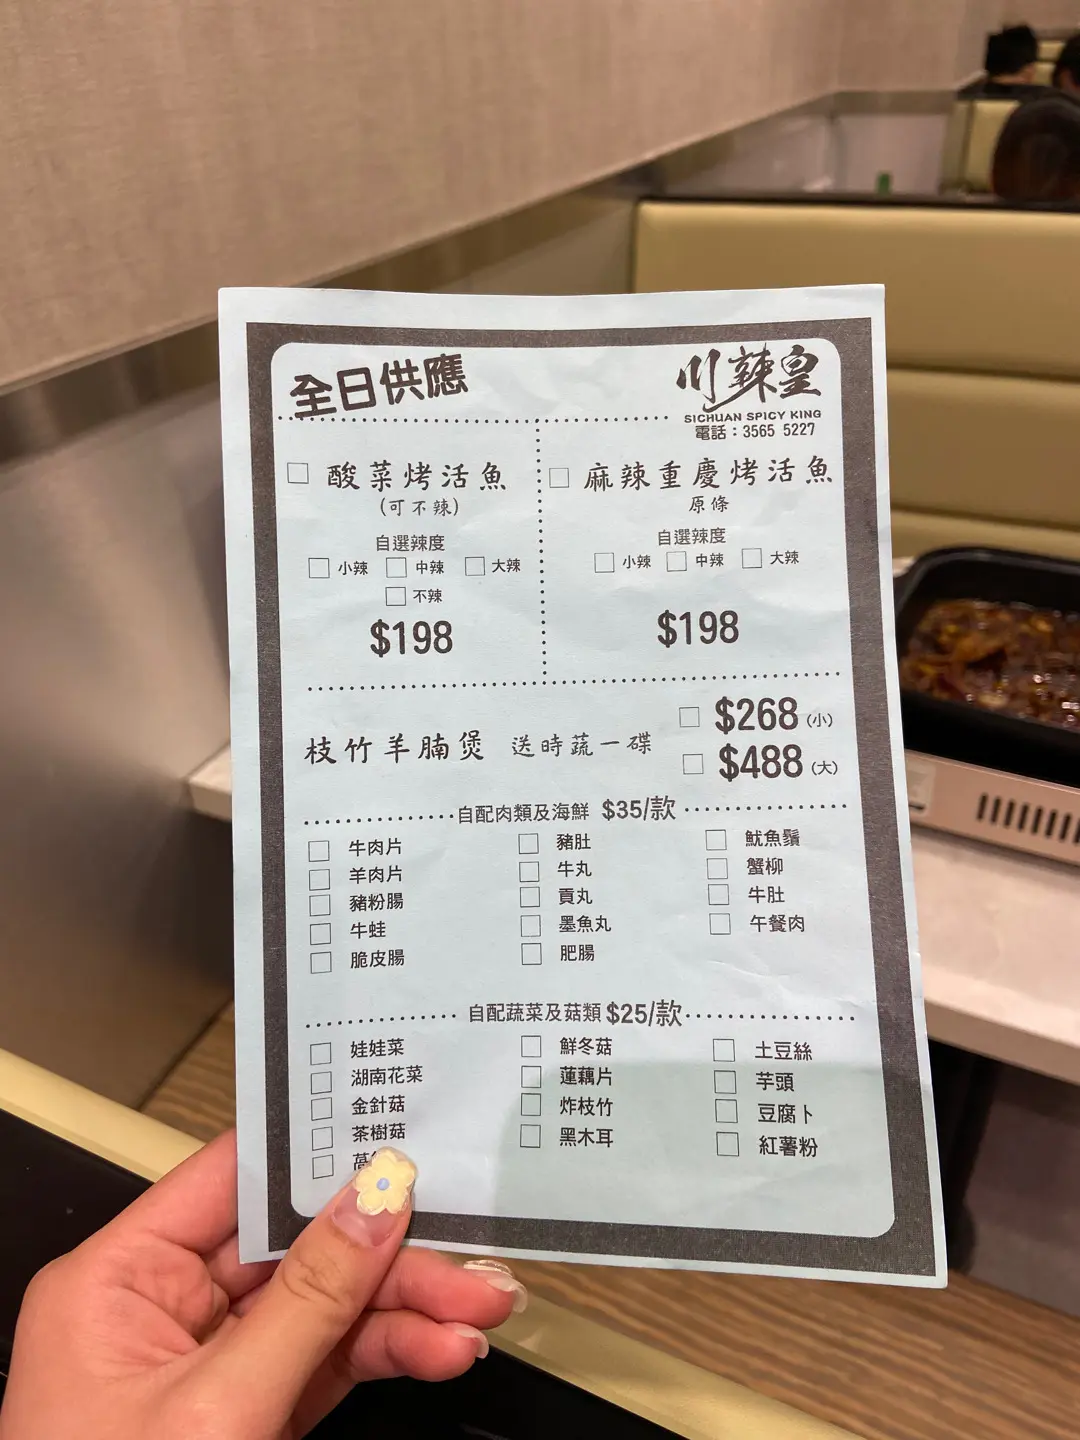 全日供應
川辣皇
SICHUAN SPICY KING
電話：3565 5227
酸菜烤活魚
(可不辣)
自選辣度
小辣 中辣 大辣
不辣
$198
麻辣重慶烤活魚
原條
自選辣度
小辣 中辣 大辣
$198
枝竹羊腩煲 送時蔬一碟
$268 (小)
$488 (大)
自配肉類及海鮮 $35/款
牛肉片
羊肉片
豬粉腸
牛蛙
脆皮腸
豬肚
牛丸
貢丸
墨魚丸
肥腸
魷魚鬚
蟹柳
牛肚
午餐肉
自配蔬菜及菇類 $25/款
娃娃菜
湖南花菜
金針菇
茶樹菇
鮮冬菇
蓮藕片
炸枝竹
黑木耳
土豆絲
芋頭
豆腐卜
紅薯粉